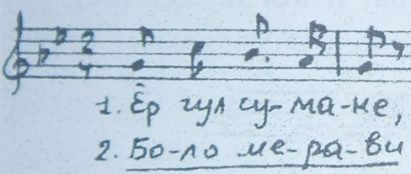 1. Ёр гул су-ма-не,
2. Бо-ло ме-ра-ви